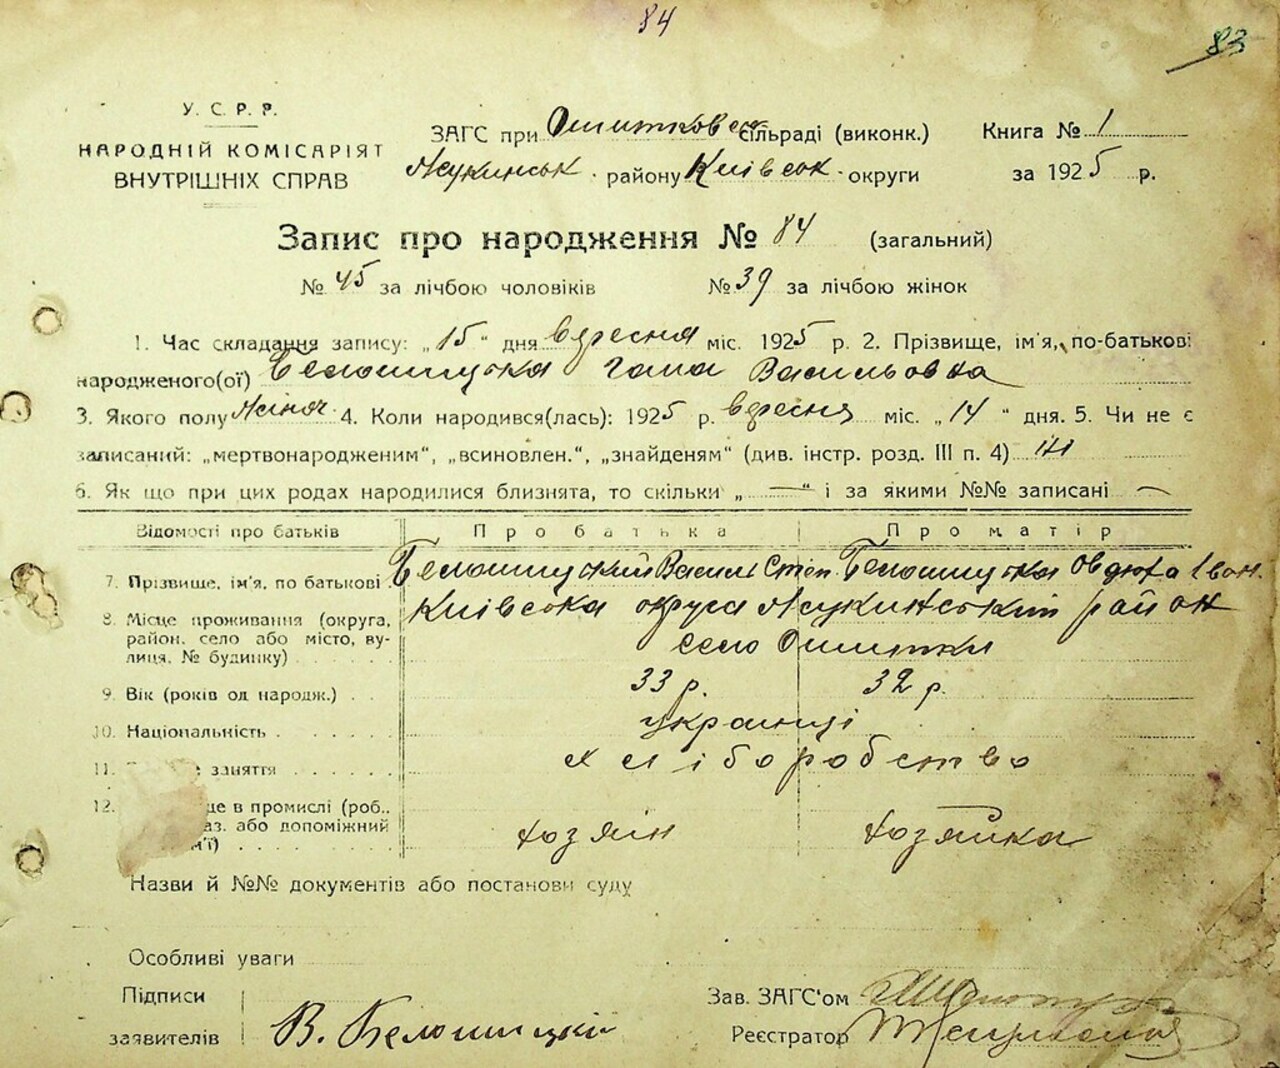 84
83
У. С. Р. Р.
НАРОДНІЙ КОМІСАРІЯТ
ВНУТРІШНІХ СПРАВ
ЗАГС при Ошитковск сільраді (виконк.)
Жукинськ. району Київськ. округи
Книга № 1
за 1925 р.
Запис про народження № 84 (загальний)
№ 45 за лічбою чоловіків № 39 за лічбою жінок
1. Час складання запису: „15" дня вересня міс. 1925 р. 2. Прізвище, ім'я, по-батькові
народженого(ої) Белошицька Гала Васильовна
3. Якого полу жіноч. 4. Коли народився(лась): 1925 р. вересня міс. „14" дня. 5. Чи не є
записаний: „мертвонародженим", „всиновлен.", „знайденям" (див. інстр. розд. III п. 4) ні
6. Як що при цих родах народилися близнята, то скільки „—" і за якими №№ записані —
Відомості про батьків Про батька Про матір
7. Прізвище, ім'я, по батькові Белошицкий Василь Степ. Белошицька Овдюха Іван.
8. Місце проживання (округа, район, село або місто, вулиця, № будинку) Київська округа Жукинський район
село Ошитки
9. Вік (років од народж.) 33 р. 32 р.
10. Національність українці
11. заняття хліборобство
12. це в промислі (роб.,
аз. або допоміжний хозяін хозяйка
Назви й №№ документів або постанови суду
Особливі уваги
Підписи
заявителів В. Белошицкі
Зав. ЗАГС'ом
Реєстратор